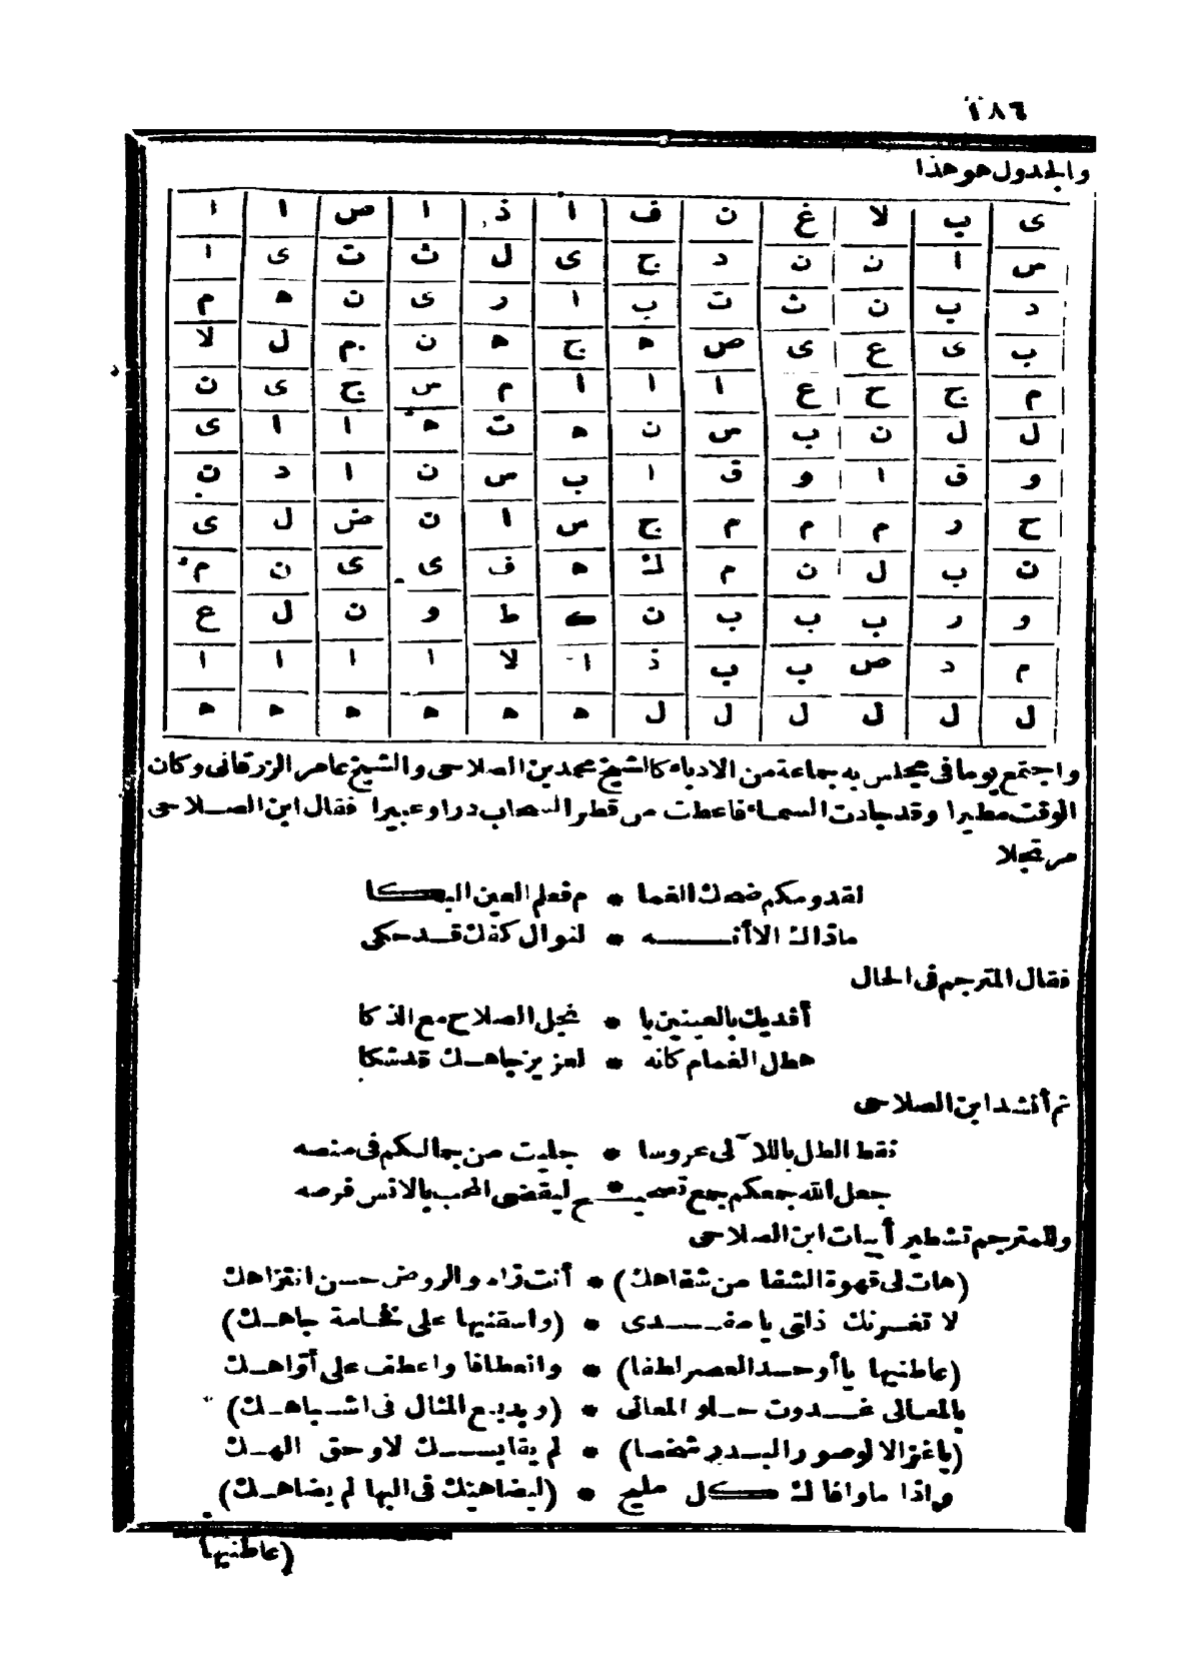 ٢٨٦
والجدول هو هذا
ى ب لا غ ن ف ا ذ ا ص ا ا
س ا ن ن د ج ى ل ث ت ى ا
د ب ن ث ت ب ا ر ى ن ه م
ب ى ع ى ص ه ج ه ن م ل لا
م ج ح ع ا ا ا م س ج ى ن
ل ل ن ب س ن ه ت ه ا ا ى
و ق ا و ق ا ب س ن ا د ن
ح ر م م م ج س ا ن ض ل ى
ن ب ل ن م ك ه ف ى ى ن م
و ر ب ب ب ن ك ط و ن ل ع
م د ص ب ب ذ ا لا ا ا ا ا
ل ل ل ل ل ل ه ه ه ه ه ه
واجتمع يوما فى مجلس به جماعة من الادباء كالشيخ محمد بن الصلاحى والشيخ عامر الزرقانى وكان
الوقت مطيرا وقد جادت السماء فاعطت من قطر السحاب درا وعبيرا فقال ابن الصلاحى
مرتجلا
لقدومكم ضحك الغما * م فعلم العين البكا
ماذاك الا أنه * لنوال كفك قد حكى
فقال المترجم فى الحال
أفديك بالعينين يا * نجل الصلاح مع الذكا
هطل الغمام كانه * لعزيز جاهك قد شكا
ثم أنشد ابن الصلاحى
نقط الطل باللآلى عروسا * جليت من جمالكم فى منصه
جعل الله جمعكم جمع تصحيح * ليقضى المحب بالانس فرصه
وللمترجم تشطير أبيات ابن الصلاحى
(هات لى قهوة الشفا من شفاهك) * أنت زاه والروض حسن انتزاهك
لا تغرنك ذاتى يا مفدى * (واسقنيها على فخامة جاهك)
(عاطنيها يا أوحد العصر لطفا) * وانعطافا واعطف على أواهك
بالمعالى غدوت حلو المعانى * (وبديع المثال فى اشباهك)
(يا غزالا لو صور البدر شخصا) * لم يقايسك لا وحق الهك
واذا ما وافاك كل مليح * (ليضاهيك فى البها لم يضاهك)
(عاطنيها)